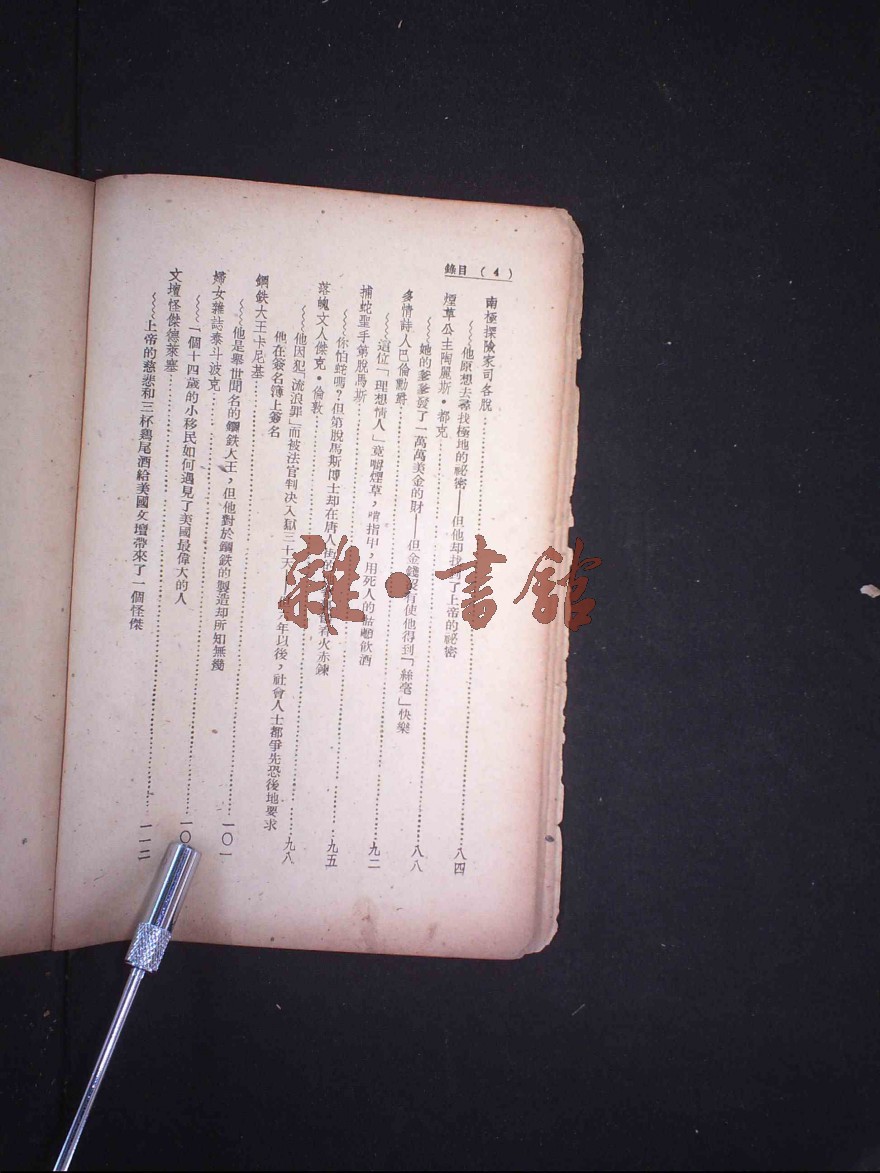 目錄 (4)
南極探險家司各脫……八四
他原想去尋找極地的祕密——但他却找到了上帝的祕密
煙草公主陶麗斯·都克……八八
她的爹爹發了一萬萬美金的財——但金錢沒有使他得到「絲毫」快樂
多情詩人巴倫勳爵……九二
這位「理想情人」竟嚼煙草,嚙指甲,用死人的骷髏飲酒
捕蛇聖手第脫馬斯……九五
你怕蛇嗎?但第脫馬斯博士却在唐人街的 火赤鍊
落魄文人傑克·倫敦……九八
他因犯「流浪罪」而被法官判決入獄三十天 六年以後,社會人士都爭先恐後地要求
他在簽名簿上簽名
鋼鉄大王卡尼基……一〇一
他是舉世聞名的鋼鉄大王,但他對於鋼鉄的製造却所知無幾
婦女雜誌泰斗波克……一〇
一個十四歲的小移民如何遇見了美國最偉大的人
文壇怪傑德萊塞……一一二
上帝的慈悲和三杯鷄尾酒給美國文壇帶來了一個怪傑
雜·書館